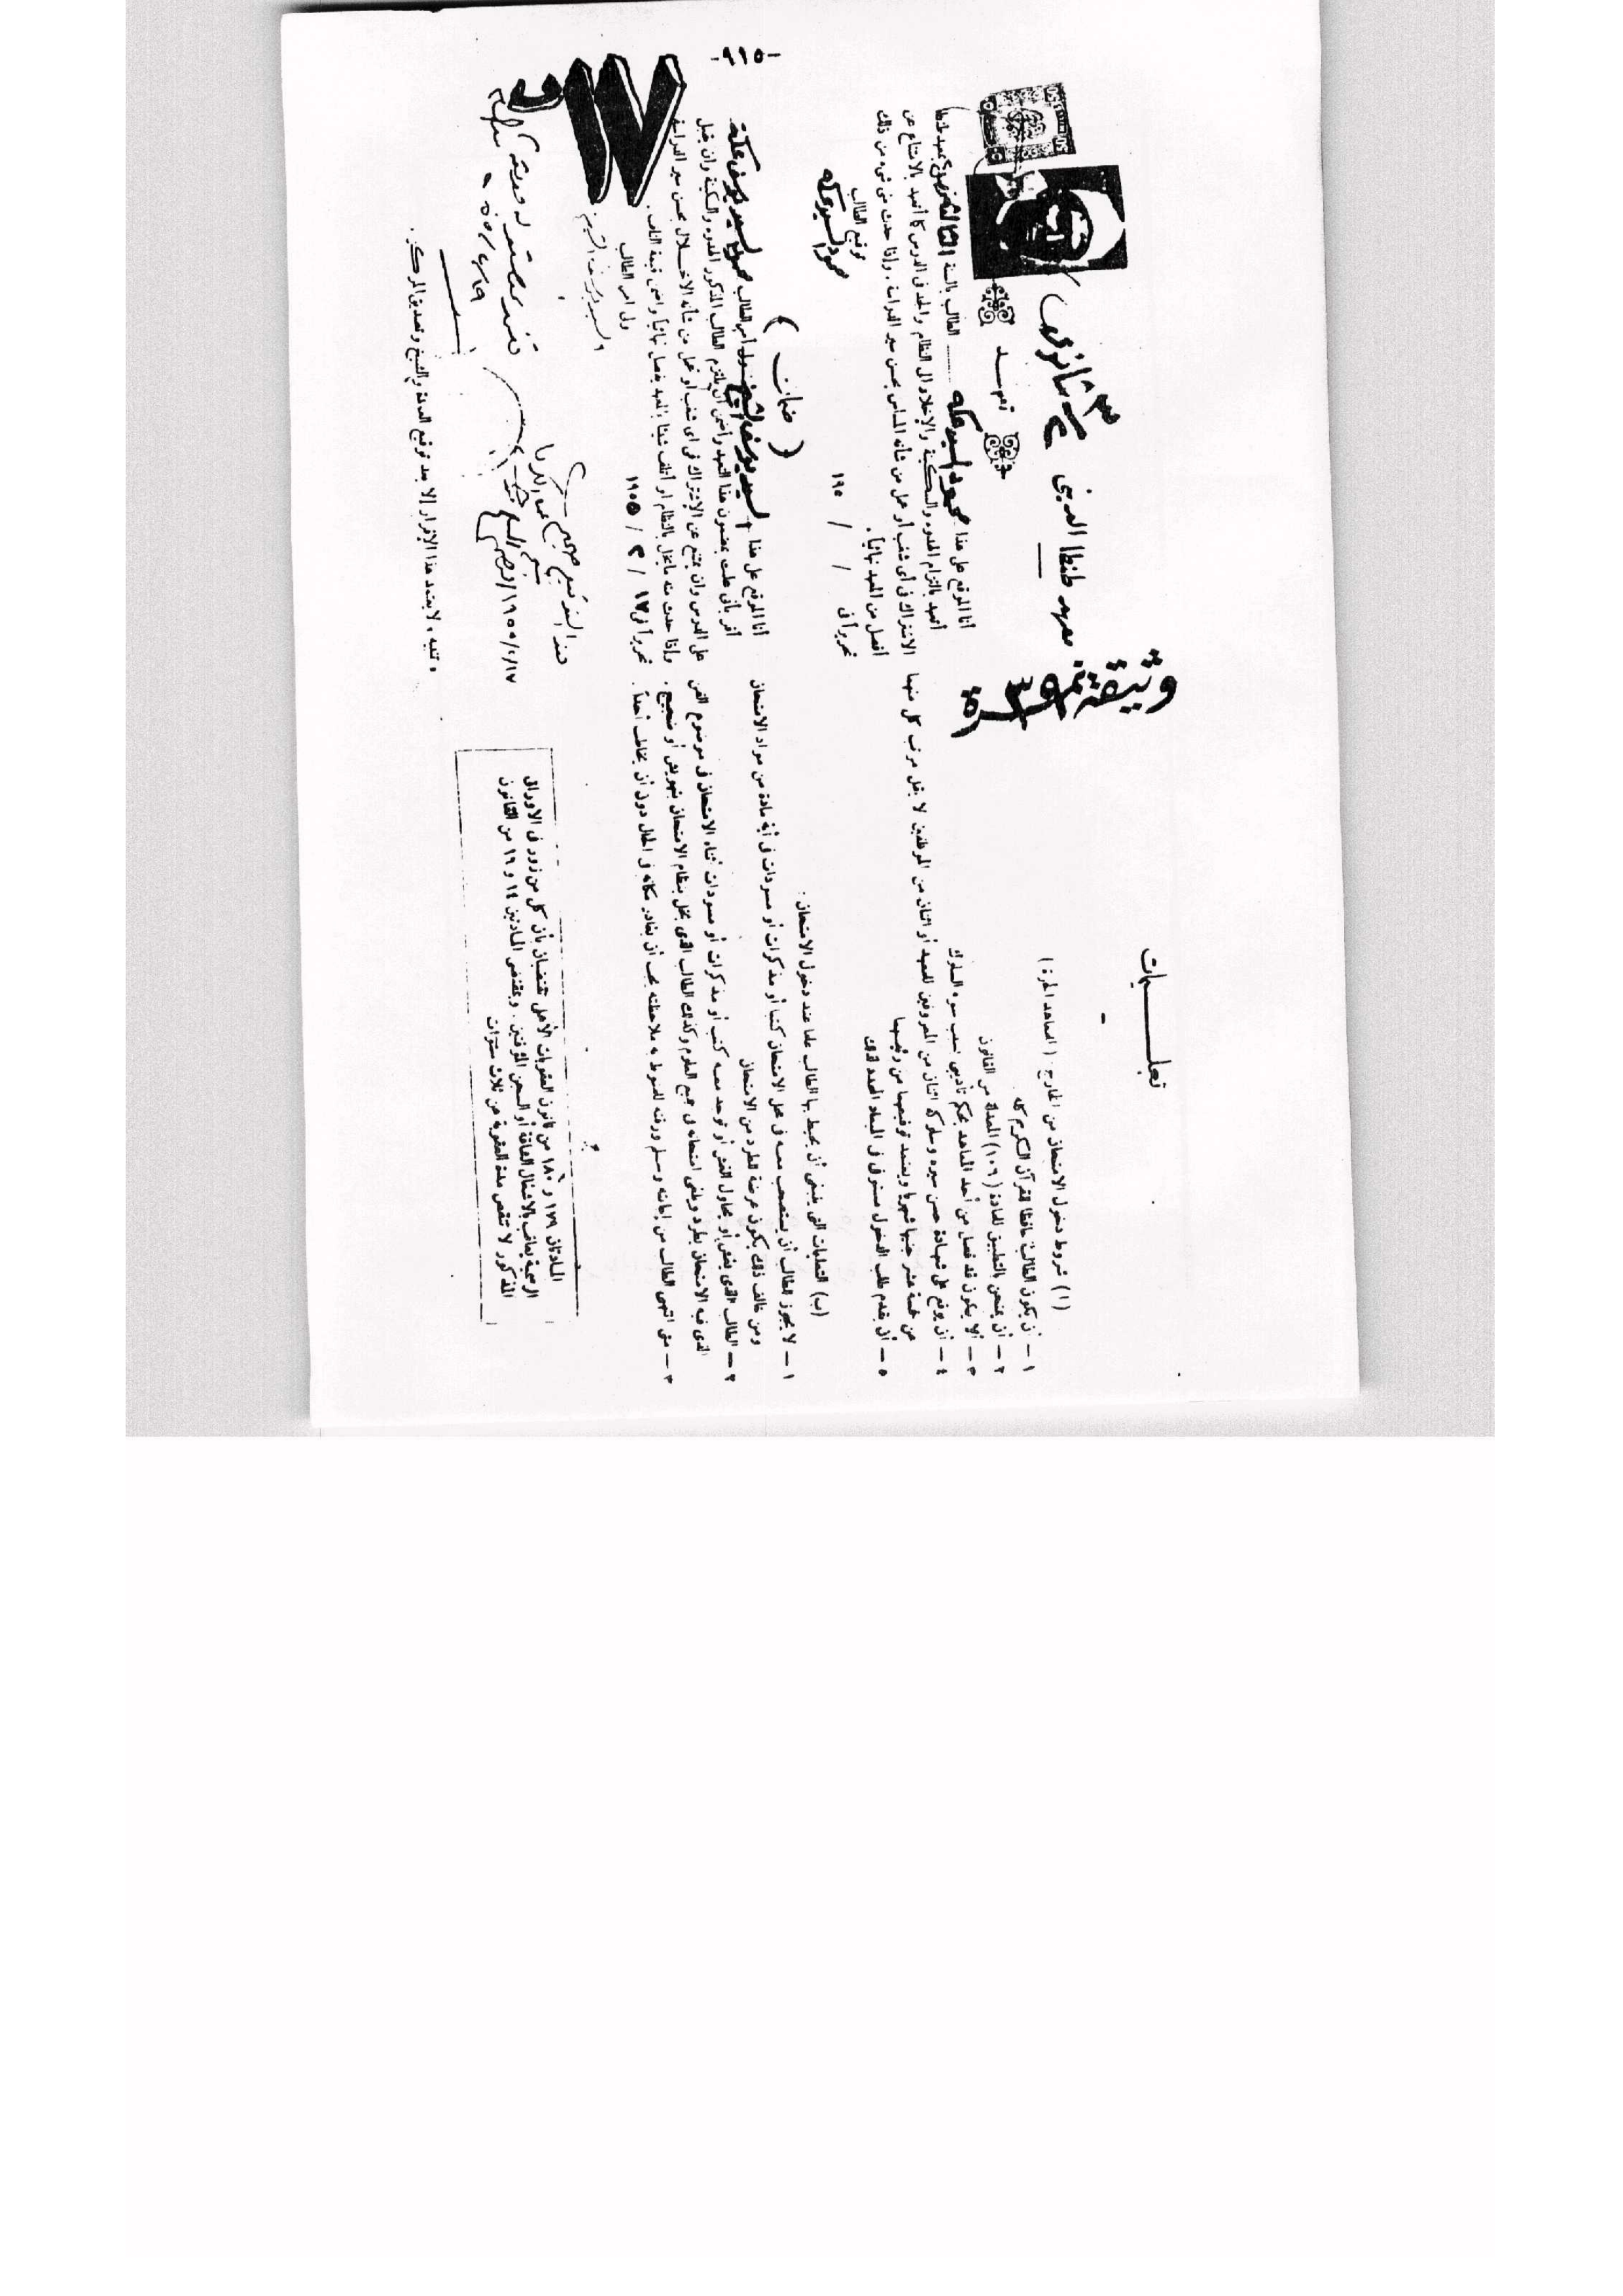 وثيقة نمرة ٣
تعليمات
(ا) شروط دخول الامتحان من الخارج. (المعاهد الحرة)
١ — أن يكون الطالب حافظا للقرآن الكريم كله
٢ — أن يمتحن بالتطبيق للمادة (١٠٦) المعدلة من القانون
٣ — ألا يكون قد فصل من أحد المعاهد بحكم تأديبي بسبب سوء السلوك
٤ — أن يوقع على شهادة حسن سيره وسلوكه اثنان من المعروفين للمعهد أو اثنان من الموظفين لا يقل مرتب كل منهما
عن خمسة عشر جنيها شهريا ويعتمد توقيعهما من رئيسهما
٥ — أن يقدم طلب الدخول مستوفى فى الميعاد المحدد لذلك
(ب) التعليمات التى ينبغى أن يحيط بها الطالب علما عند دخول الامتحان.
١ — لا يجوز للطالب أن يستصحب معه فى محل الامتحان كتبا أو مذكرات أو مسودات فى أية مادة من مواد الامتحان
ومن خالف ذلك يكون عرضة للطرد من الامتحان
٢ — الطالب الذى يغش أو يحاول الغش أو توجد معه كتب أو مذكرات أو مسودات أثناء الامتحان فى موضوع الفن
الذى فيه الامتحان يطرد ويلغى امتحانه فى جميع العلوم وكذلك الطالب الذى يخل بنظام الامتحان بتهويش أو ضجيج.
٣ — متى انتهى الطالب من إجابته وسلم ورقته للمنوط به ملاحظته يجب أن يغادر مكانه فى الحال دون أن يخاطب أحداً.
المادتان ١٧٩ و ١٨٠ من قانون العقوبات الأهلى تقضيان بأن كل من زور فى الأوراق
الرسمية يعاقب بالأشغال الشاقة أو السجن المؤقتين. وبمقتضى المادتين ١٤ و ١٦ من القانون
المذكور لا تنقص مدة العقوبة عن ثلاث سنوات
معهد طنطا الدينى
٣ ثانوى
تعهد
أنا الموقع على هذا محمود السيد عكه الطالب بالسنة الثالثة بمعهد طنطا
أتعهد بالتزام الهدوء والسكينة والإخلاد إلى النظام والجد فى الدرس كما أتعهد بالامتناع عن
الاشتراك فى أى شغب أو عمل من شأنه المساس بحسن سير الدراسة. وإذا حدث منى شىء من ذلك
أفصل من المعهد نهائياً.
تحريراً فى / / ١٩٥
توقيع الطالب
محمود السيد عكه
( ضمان )
أنا الموقع على هذا السيد يوسف الشيخ ولى أمر الطالب محمود السيد يوسف عكة
أقر بأنى علمت بمضمون هذا التعهد وأضمن أن يلتزم الطالب المذكور الهدوء والسكينة وأن يقبل
على الدرس وأن يمتنع عن الإشتراك فى أى شغب أو عمل من شأنه الإخلال بحسن سير الدراسة
وإذا حدث منه ما يخل بالنظام أو أتلف شيئا بالمعهد يفصل نهائياً وأضمن قيمة التالف.
تحريراً فى ١٧ / ٣ / ١٩٥٥
ولى أمر الطالب
و
« تنبيه » لا يعتمد هذا الإقرار إلا بعد توقيع العمدة والشيخ وتصديق المركز.
-٩١٥-